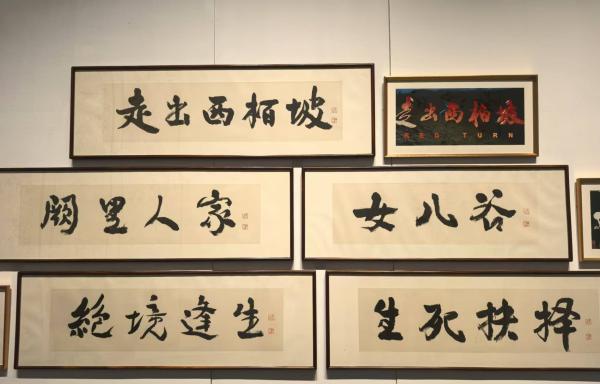 走出西柏坡
走出西柏坡
RED TURN
阙里人家
女儿谷
絕境逢生
生死抉择